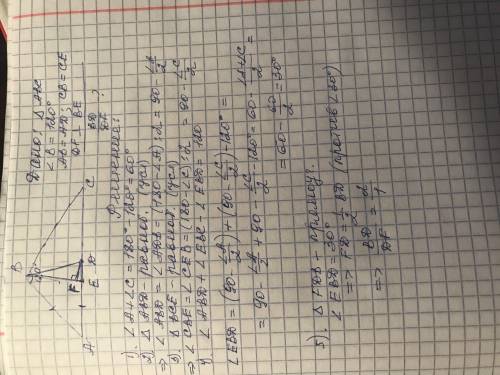 Дано: △ABC
∠B = 120°
AB = AD; CB = CE
DF ⊥ BE
BD/DF ?
B
120°
F
A
E
D
C
Решение:
1). ∠A + ∠C = 180° - 120° = 60°
2). △ABD - равноб. (усл)
⇒ ∠ABD = ∠ADB = (180 - ∠A) : 2 = 90 - ∠A/2
3). △BCE - равноб. (усл)
⇒ ∠CBE = ∠CEB = (180 - ∠C) : 2 = 90 - ∠C/2
4). ∠ABD + ∠EBC - ∠EBD = 120
∠EBD = (90 - ∠A/2) + (90 - ∠C/2) - 120° =
= 90 - ∠A/2 + 90 - ∠C/2 - 120° = 60 - (∠A+∠C)/2 =
= 60 - 60/2 = 30°
5). △FDB - прямоуг.
∠EBD = 30°
⇒ FD = 1/2 BD (против ∠30°)
⇒ BD/DF = 2/1